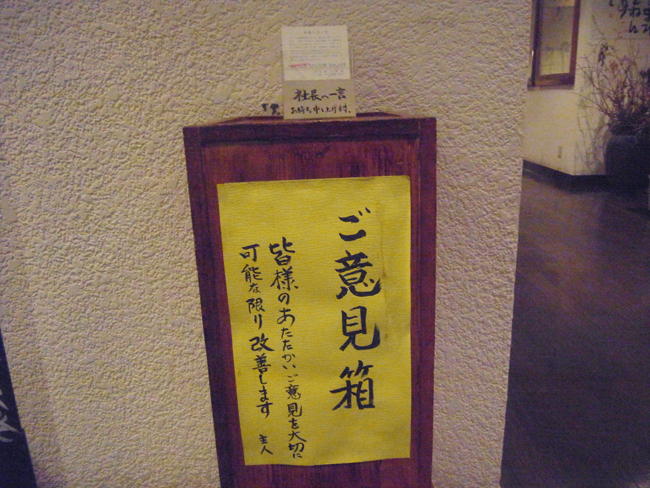 社長へ一言
お待ち申し上げます。
ご意見箱
皆様のあたたかいご意見を大切に
可能な限り改善します
主人